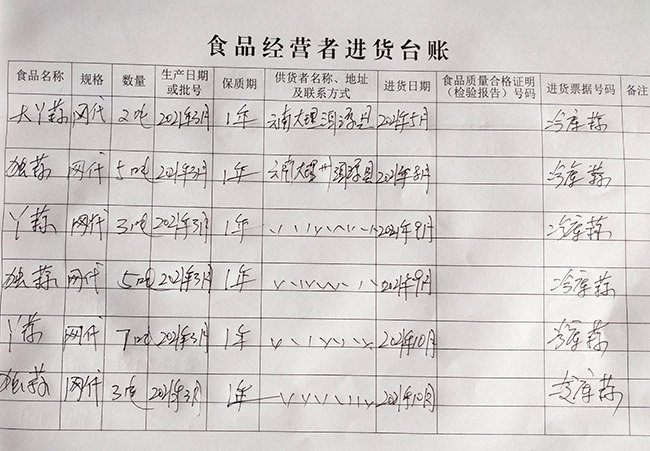 食品经营者进货台账
食品名称 规格 数量 生产日期或批号 保质期 供货者名称、地址及联系方式 进货日期 食品质量合格证明（检验报告）号码 进货票据号码 备注
大丫蒜 网代 2吨 2021年3月 1年 云南大理洱源县 2021年5月 冷库蒜
独蒜 网代 5吨 2021年3月 1年 云南大理州洱源县 2021年8月 冷库蒜
丫蒜 网代 3吨 2021年3月 1年 2021年9月 冷库蒜
独蒜 网代 5吨 2021年3月 1年 2021年9月 冷库蒜
丫蒜 网代 7吨 2021年3月 1年 2021年10月 冷库蒜
独蒜 网代 3吨 2021年3月 1年 2021年10月 冷库蒜